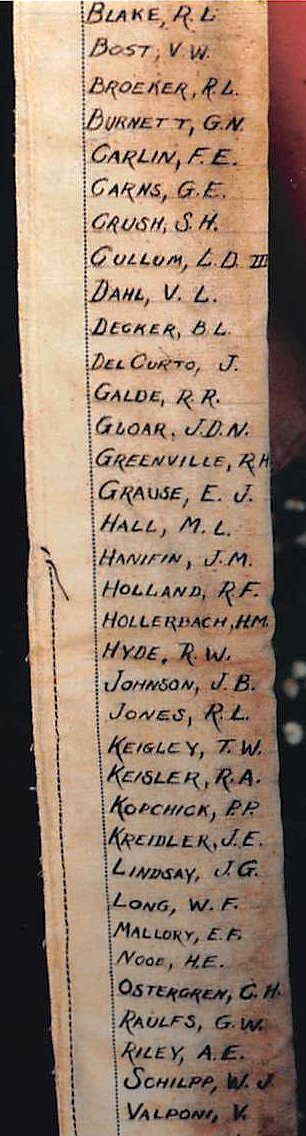 BLAKE, R. L.
BOST, V. W.
BROEKER, R. L.
BURNETT, G. N.
CARLIN, F. E.
CARNS, G. E.
CRUSH, S. H.
CULLUM, L. D. III
DAHL, V. L.
DECKER, B. L.
DEL CURTO, J.
GALDE, R. R.
GLOAR, J. D. N.
GREENVILLE, R. H.
GRAUSE, E. J.
HALL, M. L.
HANIFIN, J. M.
HOLLAND, R. F.
HOLLERBACH, H. M.
HYDE, R. W.
JOHNSON, J. B.
JONES, R. L.
KEIGLEY, T. W.
KEISLER, R. A.
KOPCHICK, P. P.
KREIDLER, J. E.
LINDSAY, J. G.
LONG, W. F.
MALLORY, E. F.
NOOE, H. E.
OSTERGREN, C. H.
RAULFS, G. W.
RILEY, A. E.
SCHILPP, W. J.
VALPONI, V.